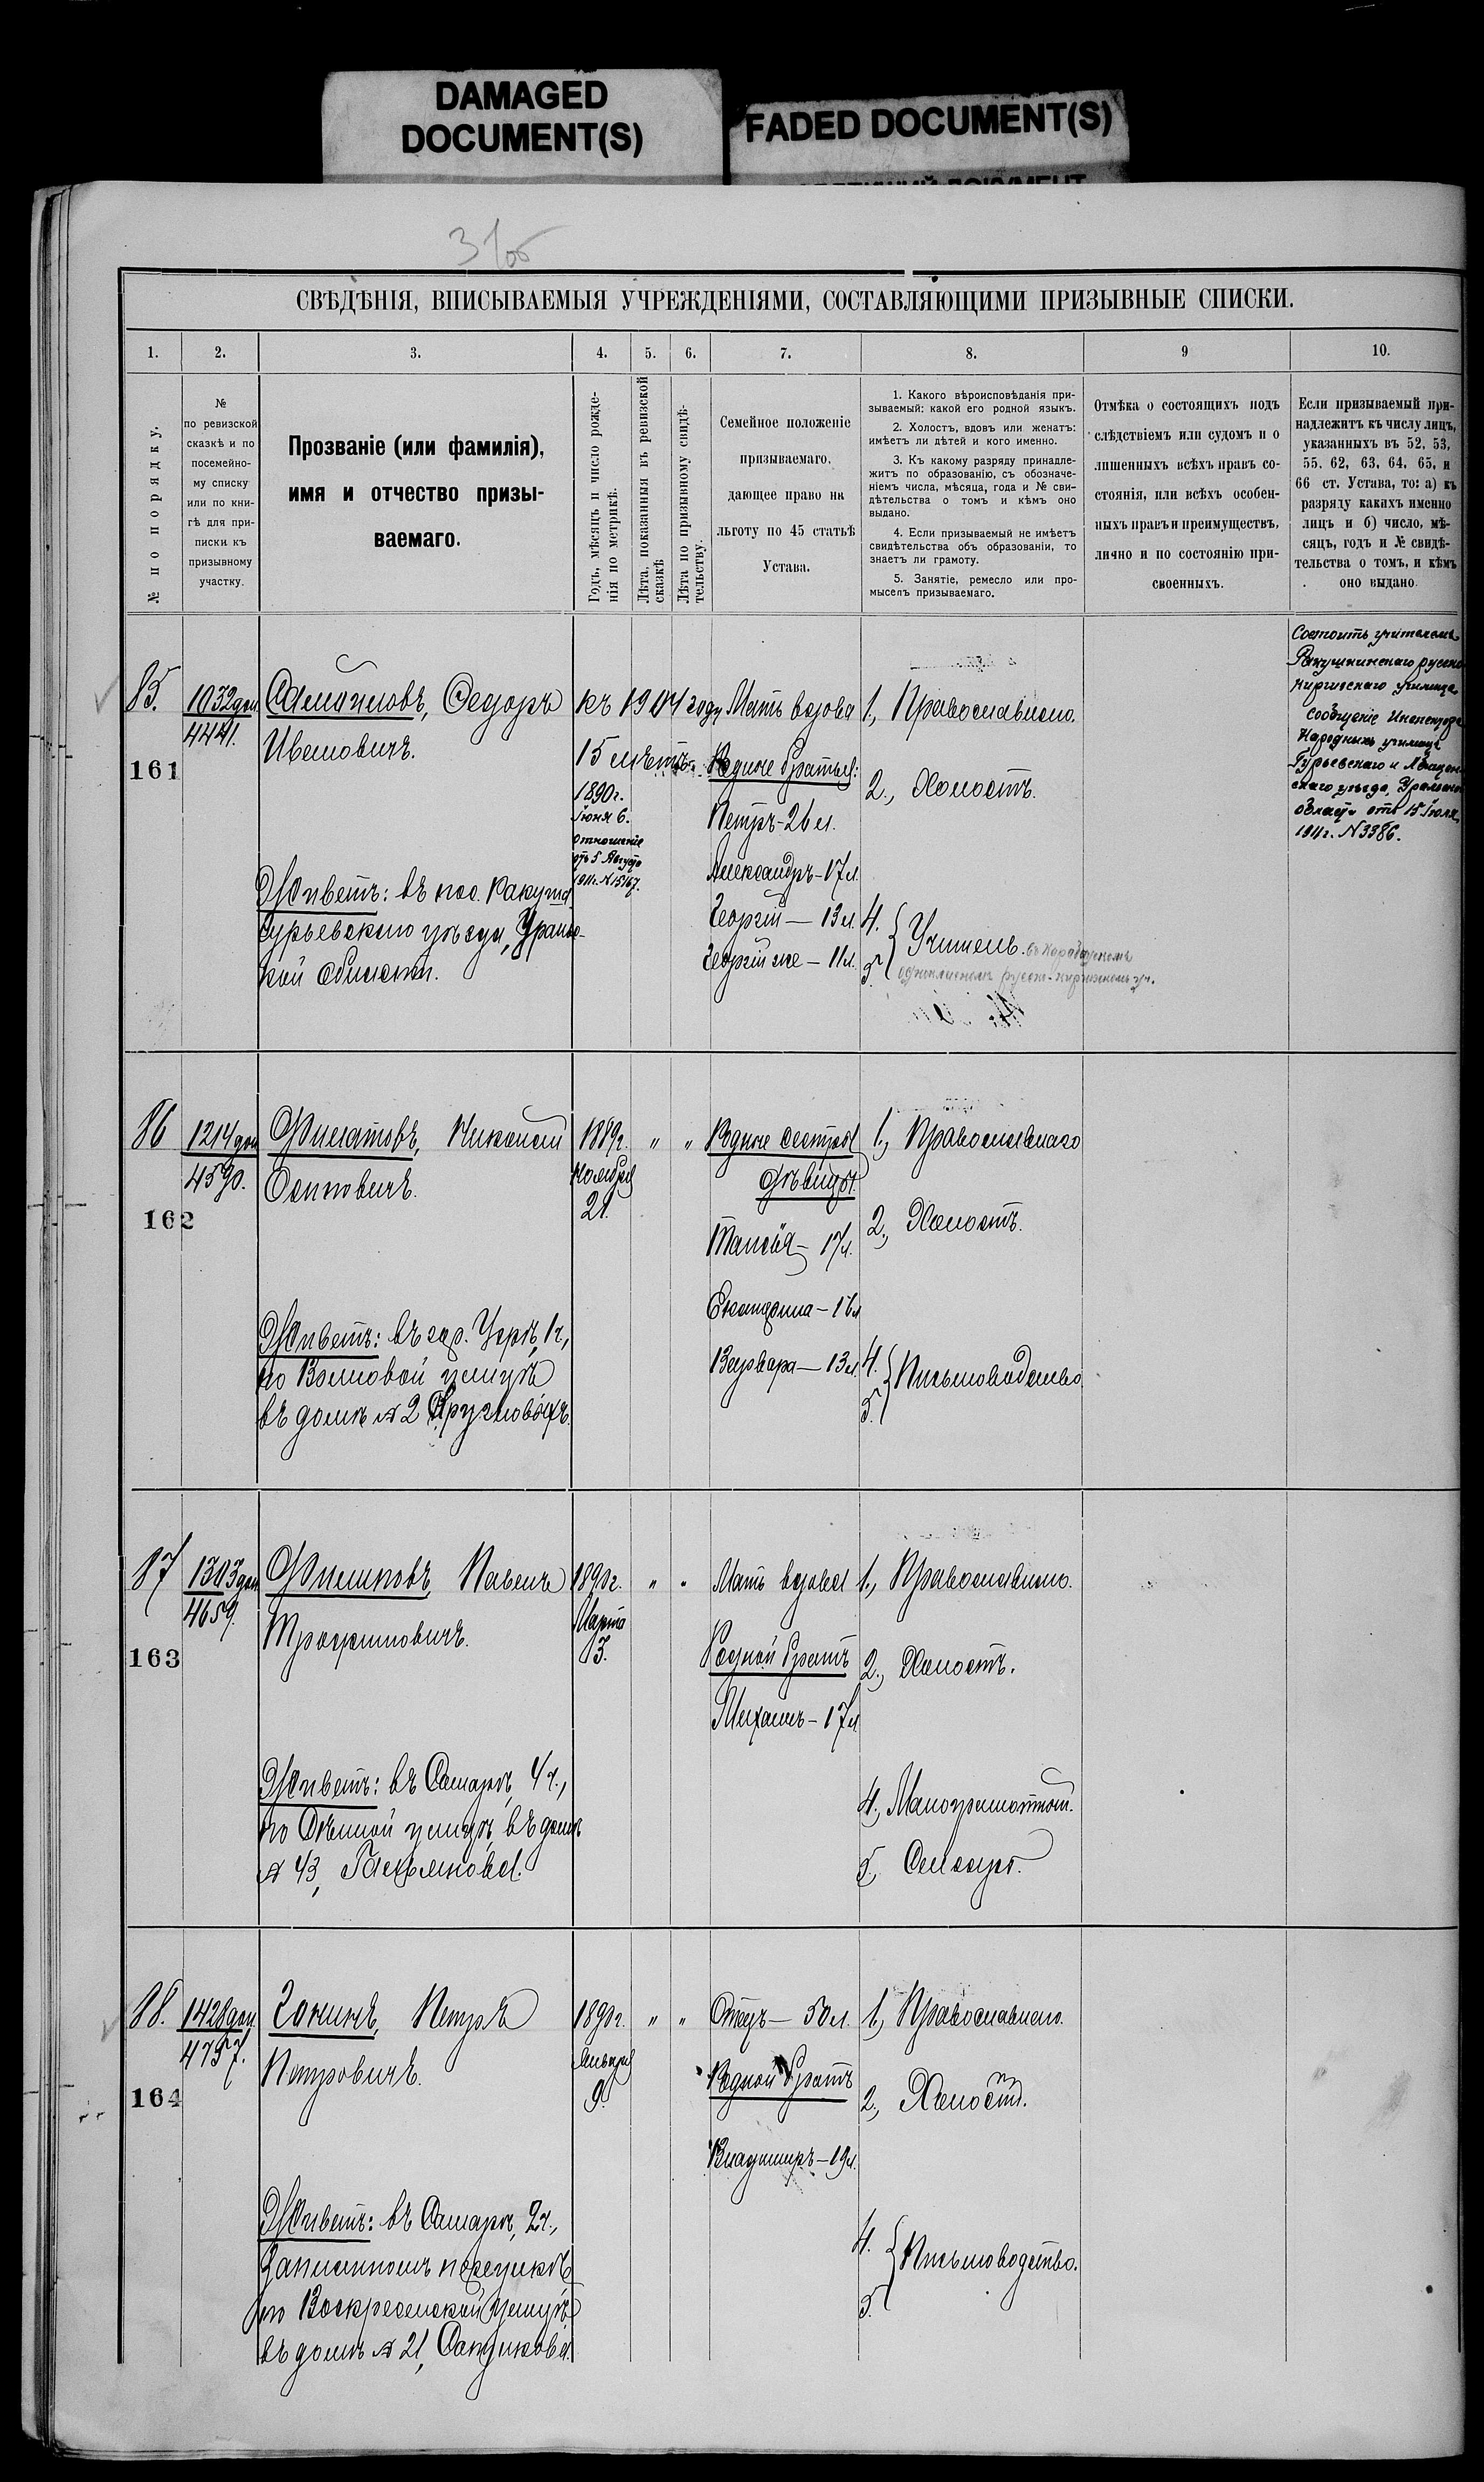 DAMAGED
DOCUMENT(S)
FADED DOCUMENT(S)
СВѢДѢНІЯ, ВПИСЫВАЕМЫЯ УЧРЕЖДЕНІЯМИ, СОСТАВЛЯЮЩИМИ ПРИЗЫВНЫЕ СПИСКИ.
1.
2.
3.
4.
5.
6.
7.
8.
9
10.
№ по порядку.
№
по ревизской
сказкѣ и по
посемейно-
му списку
или по кни-
гѣ для при-
писки къ
призывному
участку.
Прозваніе (или фамилія),
имя и отчество призы-
ваемаго.
Годъ, мѣсяцъ и число рожде-
нія по метрикѣ.
Лѣта, показанныя въ ревизской
сказкѣ
Лѣта по призывному свидѣ-
тельству.
Семейное положеніе
призываемаго,
дающее право на
льготу по 45 статьѣ
Устава.
1. Какого вѣроисповѣданія при-
зываемый: какой его родной языкъ.
2. Холостъ, вдовъ или женатъ:
имѣетъ ли дѣтей и кого именно.
3. Къ какому разряду принадле-
житъ по образованію, съ обозначе-
ніемъ числа, мѣсяца, года и № сви-
дѣтельства о томъ и кѣмъ оно
выдано.
4. Если призываемый не имѣетъ
свидѣтельства объ образованіи, то
знаетъ ли грамоту.
5. Занятіе, ремесло или про-
мыселъ призываемаго.
Отмѣка о состоящихъ подъ
слѣдствіемъ или судомъ и о
лишенныхъ всѣхъ правъ со-
стоянія, или всѣхъ особен-
ныхъ правъ и преимуществъ,
лично и по состоянію при-
своенныхъ.
Если призываемый при-
надлежитъ къ числу лицъ,
указанныхъ въ 52, 53,
55, 62, 63, 64, 65, и
66 ст. Устава, то: а) къ
разряду какихъ именно
лицъ и б) число, мѣ-
сяцъ, годъ и № свидѣ-
тельства о томъ, и кѣмъ
оно выдано.
85.
161
1032 доп
4441.
Самойловъ, Федоръ
Ивановичъ.
Живетъ: въ пос. Ракуша
Гурьевскаго уѣзда, Ураль-
кой области.
къ 1904 году
15 лѣтъ
1890г.
Іюня 6.
Отношеніе
отъ 5 Августа
1911г. № 15167.
Мать вдова
Родные братья:
Петръ - 26 л.
Александръ - 17 л.
Георгій — 13 л.
Георгій же — 11 л.
1., Православнаго.
2., Холостъ.
4.
5. Учитель.
Состоитъ учителемъ
Ракушинскаго русско
киргизскаго училища.
Сообщеніе Инспектора
Народныхъ училищъ
Гурьевскаго и
скаго уѣзда, Уральской
области отъ 15 Іюля
1911г. № 3386.
86
162
1214 доп
4590.
Филатовъ, Николай
Осиповичъ.
Живетъ: въ гор. Уфѣ, 1ч.,
по Вокзальной улицѣ
въ домѣ № 2 Кругловыхъ.
1889г.
Ноября
21.
" "
Родные сестры
дѣвицы
Таисія - 17 л.
Екатерина - 16 л
Варвара — 13 л.
1., Православнаго
2., Холостъ.
4.
5. Письмоводство
87
163
1303 доп
4659.
Филиповъ, Павелъ
Трофимовичъ.
Живетъ: въ Самарѣ, 4ч.,
по Сѣнной улицѣ, въ домѣ
№ 43,
1890г.
Марта
3.
" "
Мать вдова
Родной братъ
Михаилъ - 17 л
1., Православнаго.
2., Холостъ.
4., Малограмотный.
5., Слесарь.
88.
164
1428 доп.
4757.
Чонинъ, Петръ
Петровичъ.
Живетъ: въ Самарѣ, 2ч.,
Запанскомъ поселкѣ
по Воскресенской улицѣ
въ домѣ № 21,
1890г.
Января
9.
" "
Отецъ — 50 л.
Родной братъ
Владиміръ - 19 л.
1., Православнаго.
2., Холостъ.
4.
5. Письмоводство.